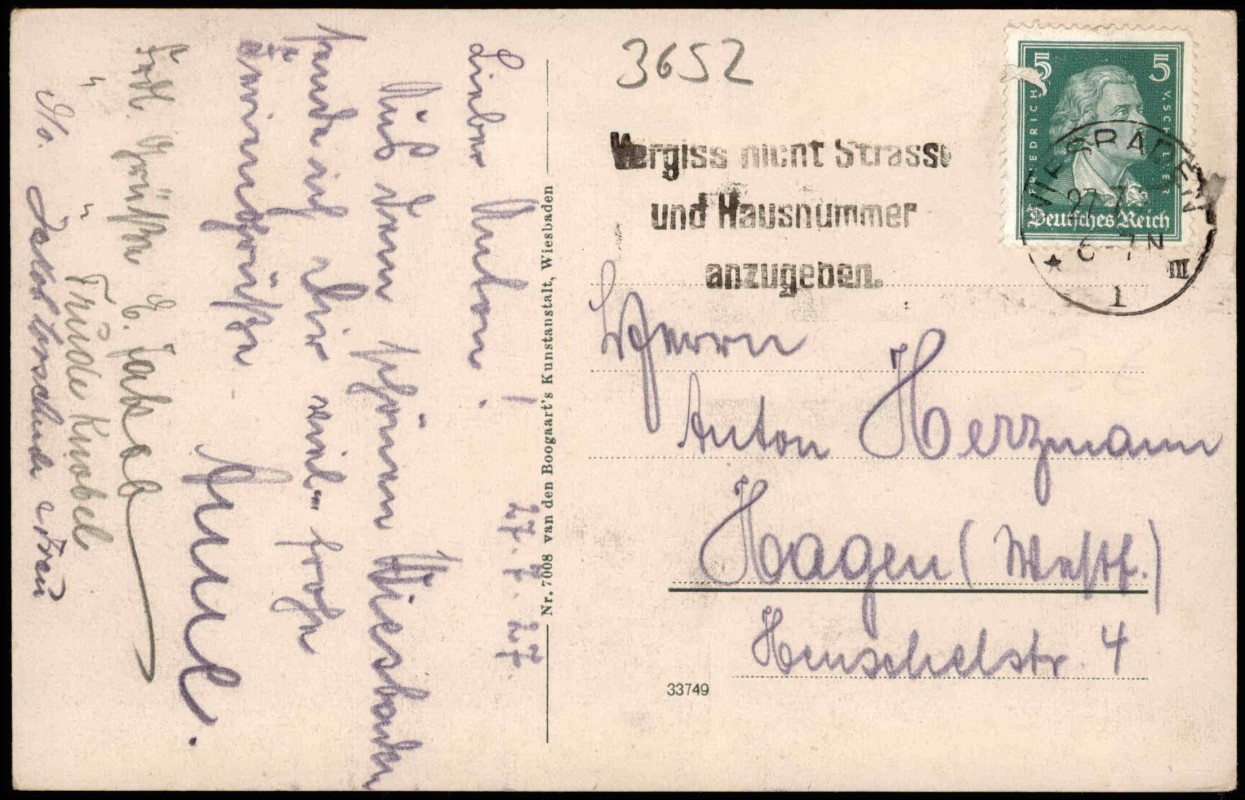 Lieber Anton!
27.7.27
Aus dem schönen Wiesbaden
sende ich Dir viel frohe
Feriengrüße.
Frdl. Grüße E. Jakob
" " Trude Knobel
Jakob u. Frau
Nr. 7008 van den Boogaart's Kunstanstalt, Wiesbaden
3652
Vergiss nicht Strasse
und Hausnummer
anzugeben.
5 5
FRIEDRICH V. SCHILLER
Deutsches Reich
WIESBADEN
27.7.
6-7N
* 1 III
Herrn
Anton Herzmann
Hagen (Westf.)
Henschelstr. 4
33749